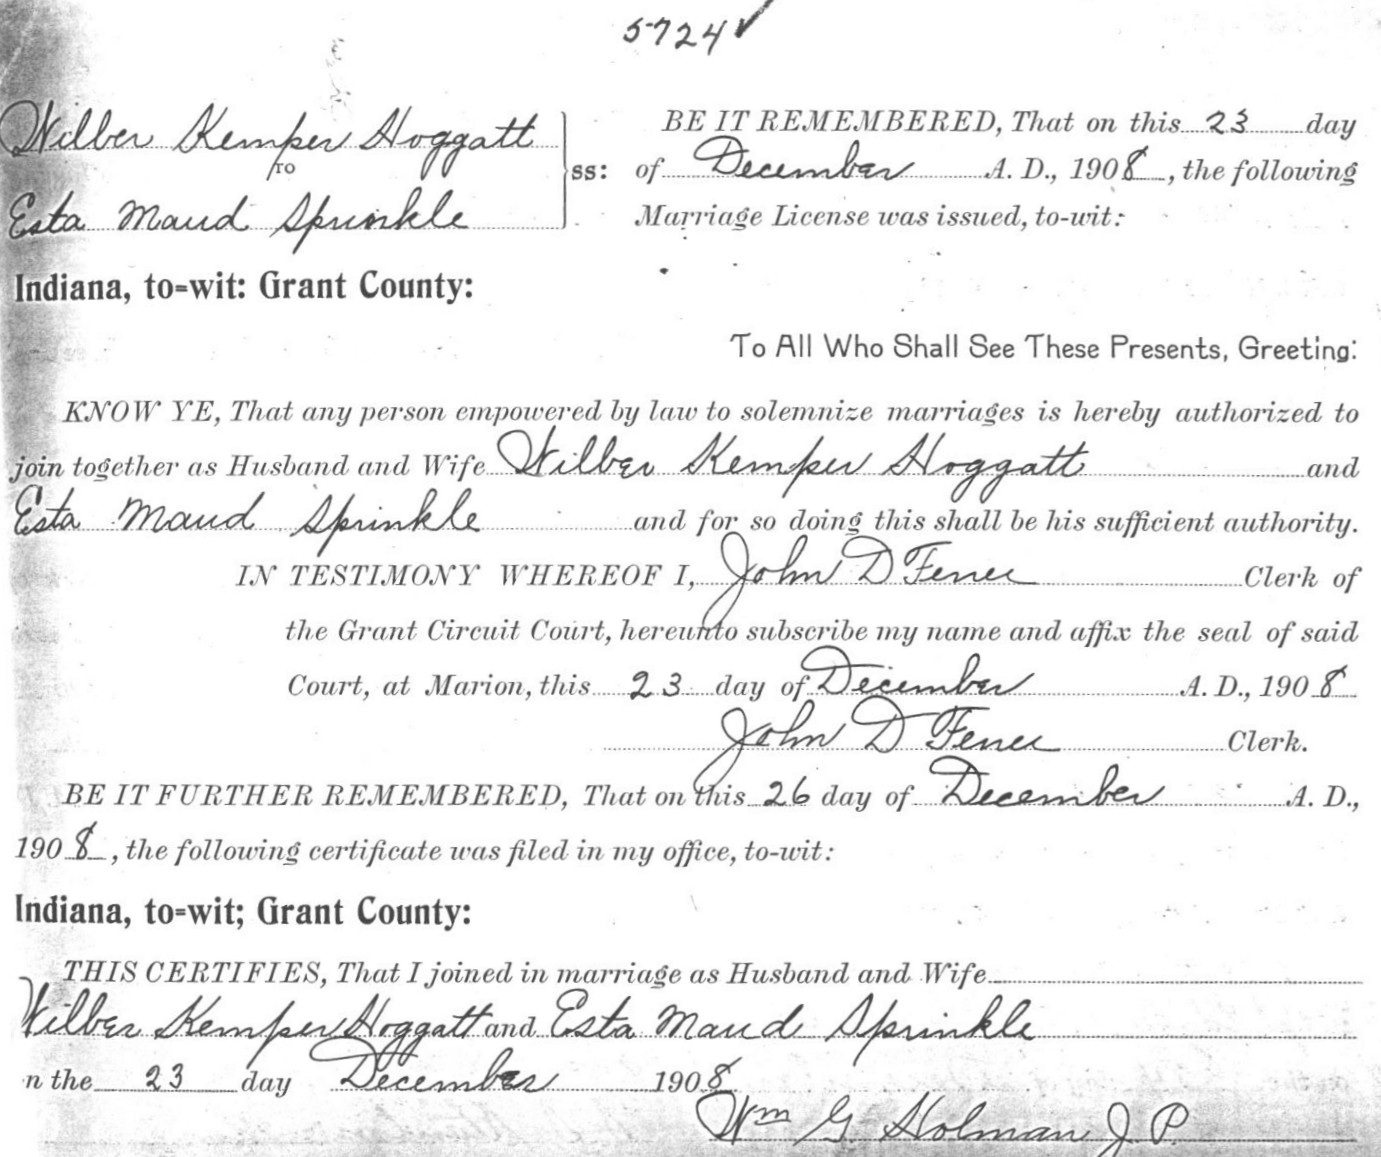 5724✓
Wilber Kemper Hoggatt
TO
Esta Maud Sprinkle
ss:
BE IT REMEMBERED, That on this 23 day
of December A. D., 1908, the following
Marriage License was issued, to-wit:
Indiana, to=wit: Grant County:
To All Who Shall See These Presents, Greeting:
KNOW YE, That any person empowered by law to solemnize marriages is hereby authorized to
join together as Husband and Wife Wilber Kemper Hoggatt and
Esta Maud Sprinkle and for so doing this shall be his sufficient authority.
IN TESTIMONY WHEREOF I, John D Ferree Clerk of
the Grant Circuit Court, hereunto subscribe my name and affix the seal of said
Court, at Marion, this 23 day of December A. D., 1908
John D Ferree Clerk.
BE IT FURTHER REMEMBERED, That on this 26 day of December A. D.,
1908, the following certificate was filed in my office, to-wit:
Indiana, to=wit; Grant County:
THIS CERTIFIES, That I joined in marriage as Husband and Wife
Wilber Kemper Hoggatt and Esta Maud Sprinkle
n the 23 day December 1908
Wm G. Holman J P.